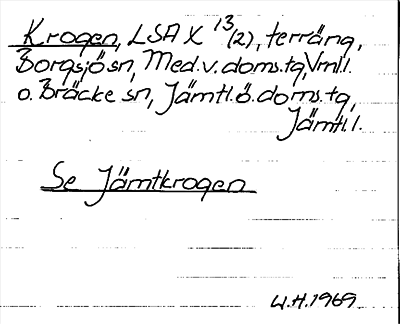 Krogen, LSA X 13(2), terräng,
Borgsjö sn, Med.v.doms.tg, Vml.l.
o. Bräcke sn, Jämtl.ö.doms.tg,
Jämtl.l.
Se Jämtkrogen
W.H.1969